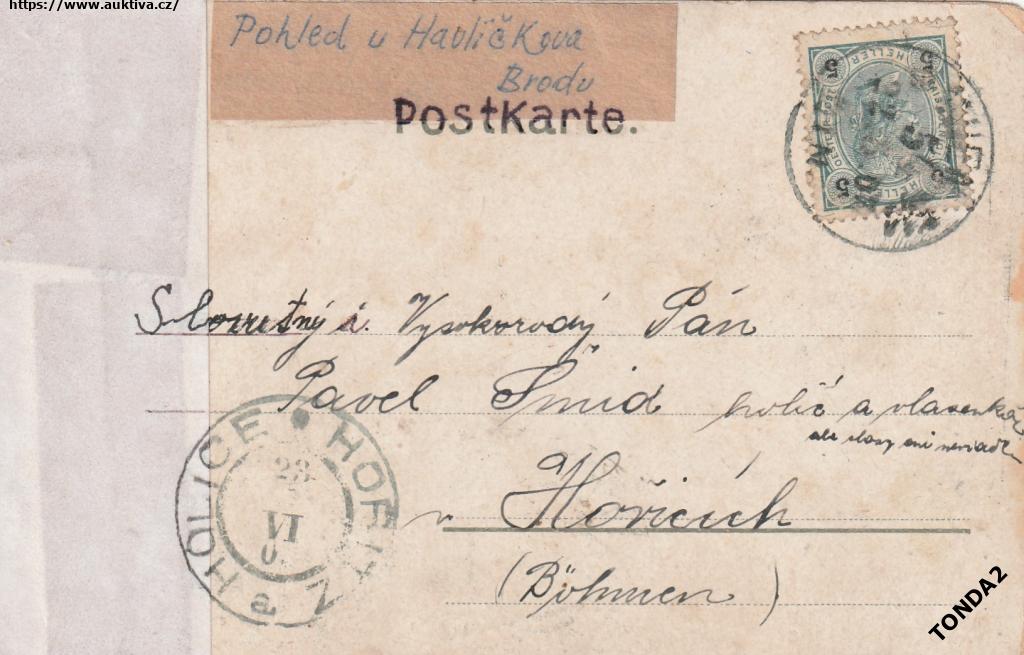 https://www.auktiva.cz/
Pohled u Havlíčkova
Brodu
PostKarte.
HELLER
5 5
5 5
Vysokorodý Pán
Pavel Šmíd holič a vlasenkář
ale vlasy ani
v Hořicích
(Böhmen)
HOŘITZ * HOLICE a
23
VI
TONDA2